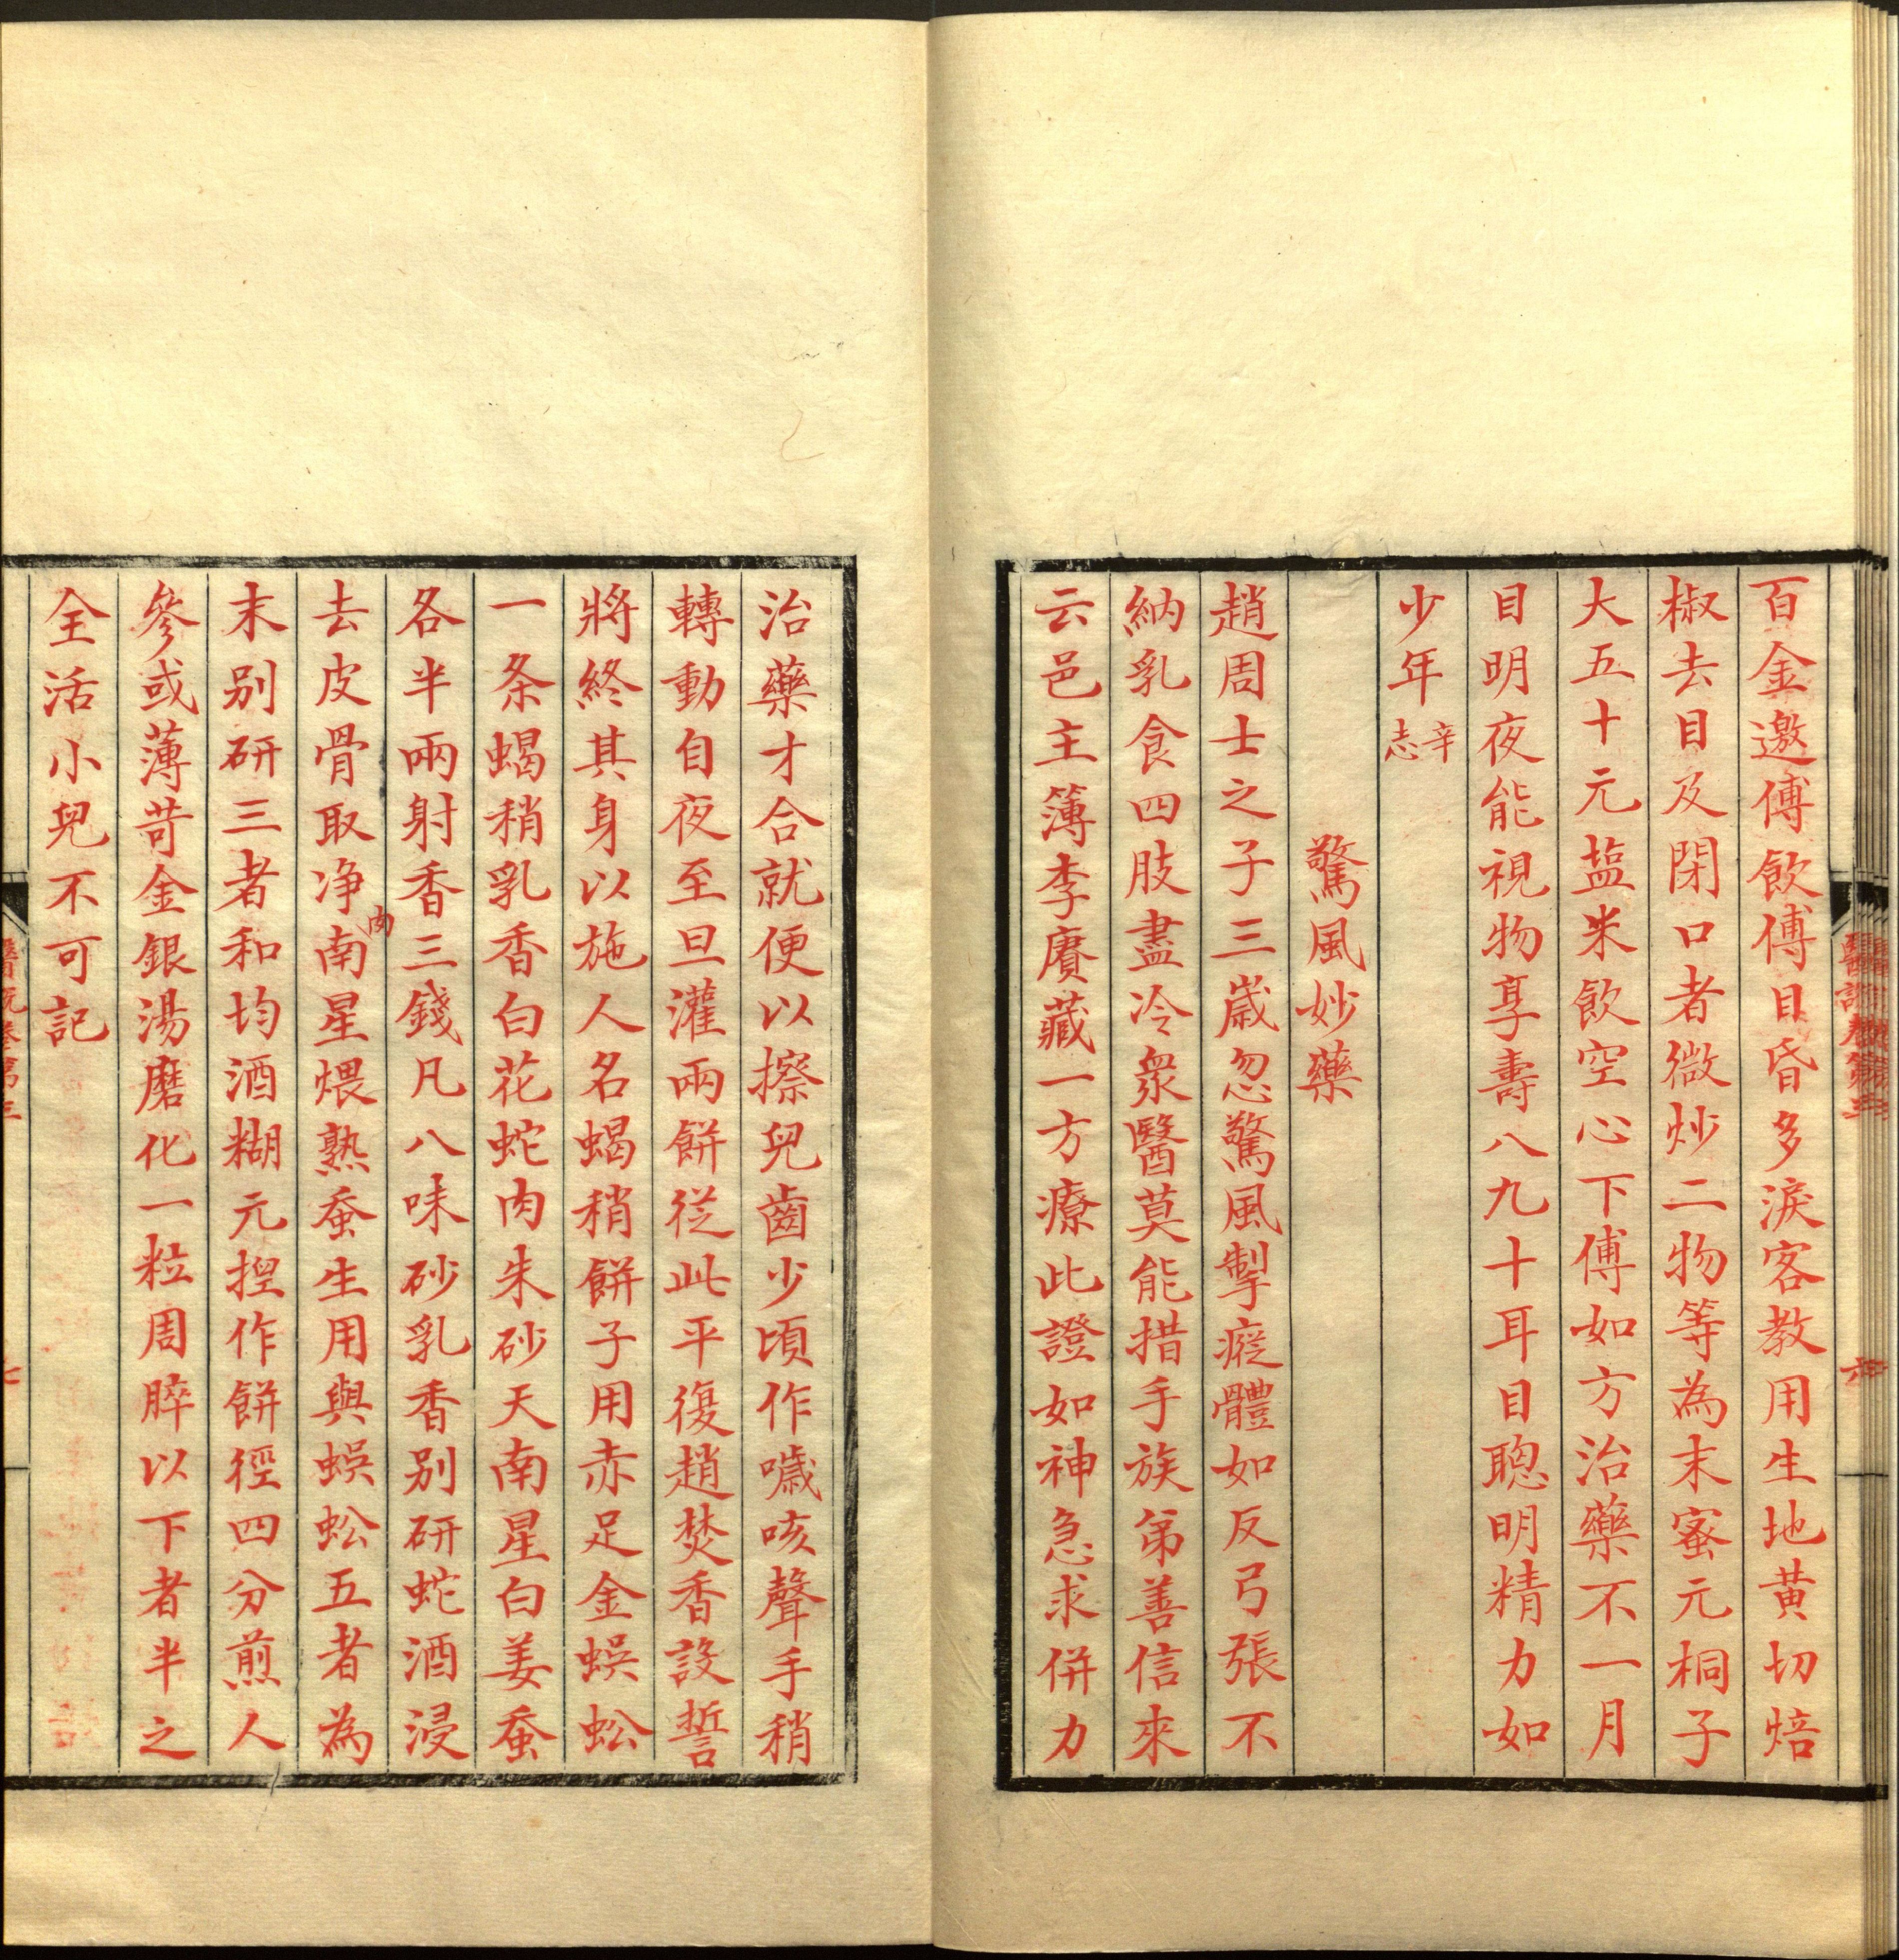 百金邀傅飲傅目昏多淚客教用生地黃切焙
椒去目及閉口者微炒二物等為末蜜元桐子
大五十元塩米飲空心下傅如方治藥不一月
目明夜能視物享壽八九十耳目聰明精力如
少年辛志
驚風妙藥
趙周士之子三歲忽驚風掣瘲體如反弓張不
納乳食四肢盡冷衆醫莫能措手族弟善信來
云邑主簿李賡藏一方療此證如神急求併力
治藥才合就便以擦兒齒少頃作噦咳聲手稍
轉動自夜至旦灌兩餅從此平復趙焚香設誓
將終其身以施人名蝎稍餅子用赤足金蜈蚣
一条蝎稍乳香白花蛇肉朱砂天南星白姜蚕
各半兩射香三錢凡八味砂乳香別研蛇酒浸
去皮骨取净肉南星煨熟蚕生用與蜈蚣五者為
末別研三者和均酒糊元揑作餅徑四分煎人
參或薄苛金銀湯磨化一粒周晬以下者半之
全活小兒不可記